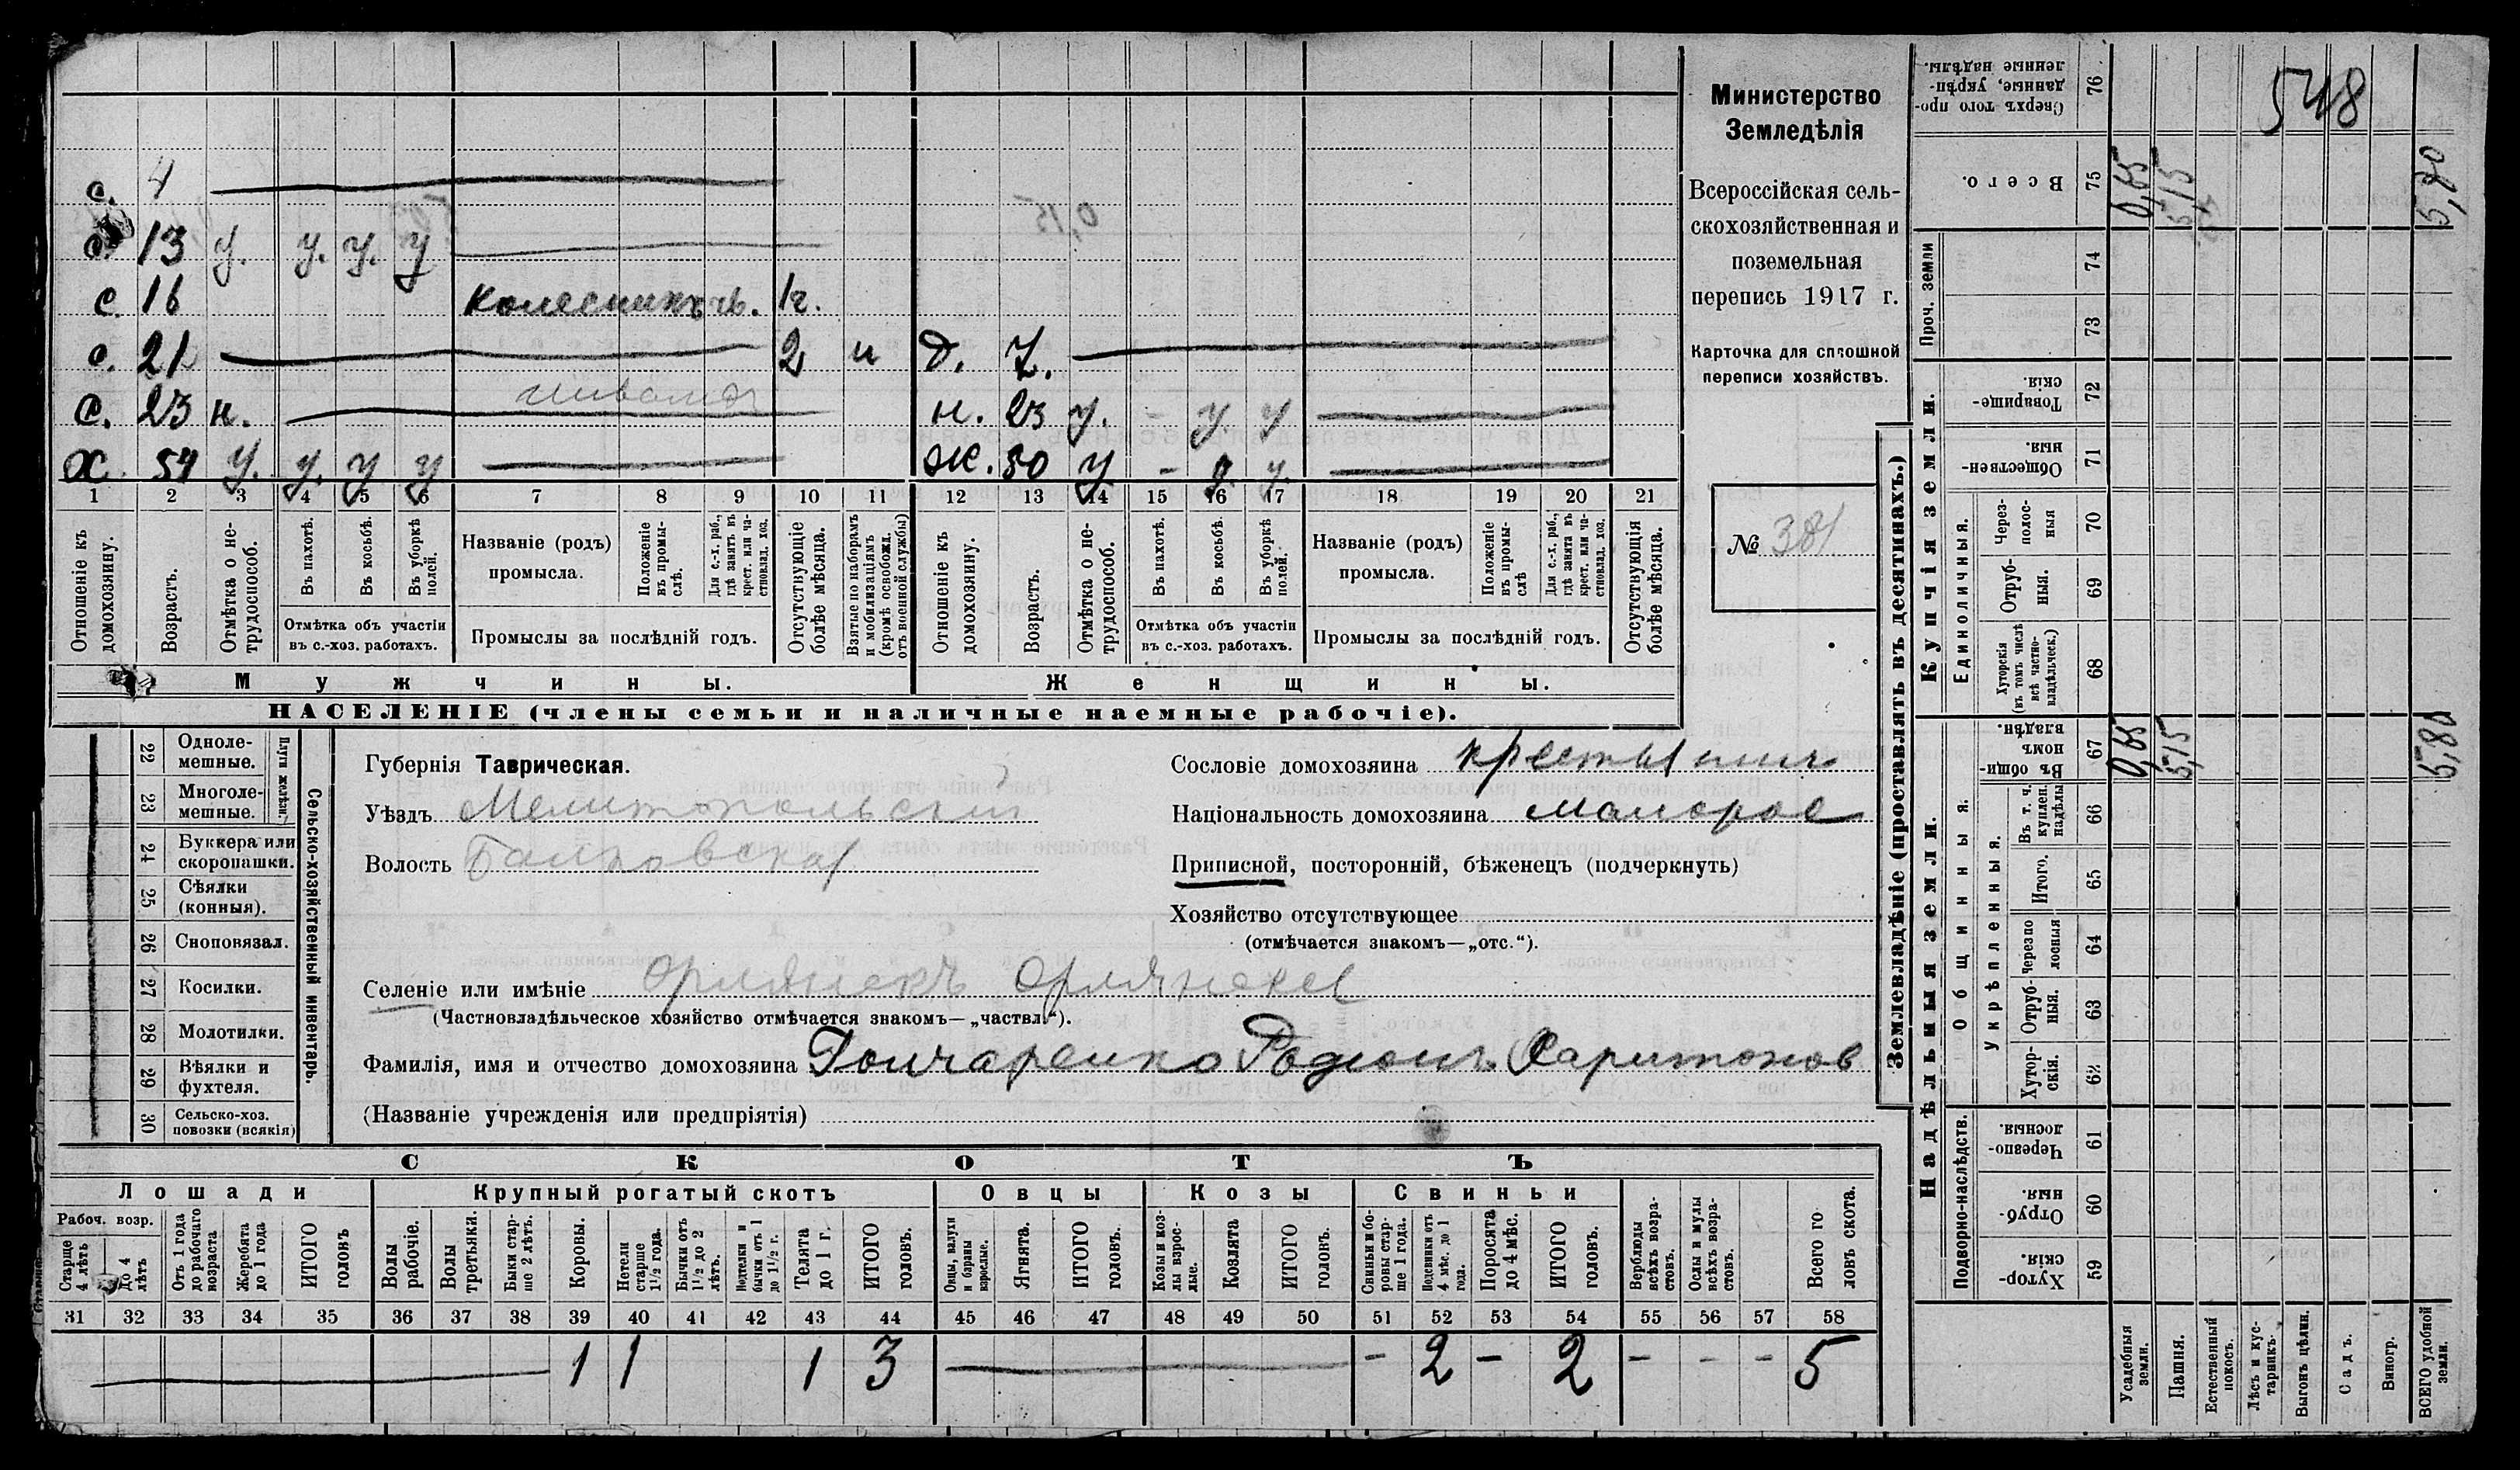 548
Министерство
Земледѣлія
Всероссійская сель-
скохозяйственная и
поземельная
перепись 1917 г.
Карточка для сплошной
переписи хозяйствъ.
№ 381
с. 4
с. 13 у. у. у. у
с. 16 колесникъ 1г.
с. 21 2 и д. 7.
с. 23 н. н. 23 у. - у. у
Х. 54 у. у. у у ж. 50 у - у. у.
1 2 3 4 5 6 7 8 9 10 11 12 13 14 15 16 17 18 19 20 21
Отношеніе къ домохозяину.
Возрастъ.
Отмѣтка о не-трудоспособ.
Въ пахотѣ.
Въ косьбѣ.
Въ уборкѣ полей.
Отмѣтка объ участіи
въ с.-хоз. работахъ.
Названіе (родъ)
промысла.
Положеніе въ промы-слѣ.
Для с.-х. раб., гдѣ занятъ въ крест. или ча-стновлад. хоз.
Промыслы за послѣдній годъ.
Отсутствующіе болѣе мѣсяца.
Взятые по наборамъ и мобилизаціямъ (кромѣ освобожд. отъ военной службы)
Отношеніе къ домохозяину.
Возрастъ.
Отмѣтка о не-трудоспособ.
Въ пахотѣ.
Въ косьбѣ.
Въ уборкѣ полей.
Отмѣтка объ участіи
въ с.-хоз. работахъ.
Названіе (родъ)
промысла.
Положеніе въ промы-слѣ
Для с.-х. раб., гдѣ занята въ крест. или ча-стновлад. хоз.
Промыслы за послѣдній годъ.
Отсутствующія болѣе мѣсяца.
Мужчины.
Женщины.
НАСЕЛЕНІЕ (члены семьи и наличные наемные рабочіе).
Сельско-хозяйственный инвентарь.
Плуги желѣзн.
22 Одноле-мешные.
23 Многоле-мешные.
24 Буккера или скоропашки.
25 Сѣялки (конныя).
26 Сноповязал.
27 Косилки.
28 Молотилки.
29 Вѣялки и фухтеля.
30 Сельско-хоз. повозки (всякія)
Губернія Таврическая.
Уѣздъ Мелитопольскій
Волость
Сословіе домохозяина крестьянин
Національность домохозяина малорос
Приписной, посторонній, бѣженецъ (подчеркнуть)
Хозяйство отсутствующее
(отмѣчается знакомъ—„отс.“).
Селеніе или имѣніе Орлянскъ
(Частновладѣльческое хозяйство отмѣчается знакомъ—„частвл.“).
Фамилія, имя и отчество домохозяина Гончаренко Родіонъ Харитонов
(Названіе учрежденія или предпріятія)
СКОТЪ
Лошади
Крупный рогатый скотъ
Овцы
Козы
Свиньи
Рабоч. возр.
Старше 4 лѣтъ
До 4 лѣтъ
Отъ 1 года до рабочаго возраста
Жеребята до 1 года
ИТОГО головъ
Волы рабочіе.
Волы третьяки.
Быки стар-ше 2 лѣтъ.
Коровы.
Нетели старше 1½ года.
Бычки отъ 1½ до 2 лѣтъ.
Подтелки и бычки отъ 1 до 1½ г.
Телята до 1 г.
ИТОГО головъ.
Овцы, валухи и бараны взрослые.
Ягнята.
ИТОГО головъ.
Козы и коз-лы взрос-лые.
Козлята
ИТОГО головъ.
Свиньи и бо-ровы стар-ше 1 года.
Подсвинки отъ 4 мѣс. до 1 года.
Поросята до 4 мѣс.
ИТОГО головъ.
Верблюды всѣхъ возра-стовъ.
Ослы и мулы всѣхъ возра-стовъ.
Всего го-ловъ скота.
31 32 33 34 35 36 37 38 39 40 41 42 43 44 45 46 47 48 49 50 51 52 53 54 55 56 57 58
1 1 1 3 - 2 - 2 - - - 5
Землевладѣніе (проставлять въ десятинахъ.)
Купчія земли.
Надѣльныя земли.
Сверхъ того про-данные, укрѣп-ленные надѣлы. 76
Всего. 75 0,65 5,15 5,80
Проч. земли
74
73
Товарище-скія. 72
Обществен-ныя. 71
Единоличныя.
Через-полос-ныя 70
Отруб-ныя. 69
Хуторскія (въ томъ числѣ всѣ частно-владѣльческ.) 68
Общинныя.
Въ общи-номъ владѣн. 67 0,65 5,15 5,80
Укрѣпленныя.
Въ т. ч. куплен. надѣлы 66
Итого. 65
Черезпо-лосныя 64
Отруб-ныя. 63
Хутор-скія. 62
Подворно-наслѣдств.
Черезпо-лосныя. 61
Отруб-ныя. 60
Хутор-скія. 59
Усадебныя земли.
Пашня.
Естественный покосъ.
Лѣсъ и кус-тарникъ.
Выгонъ цѣлин.
Садъ.
Виногр.
ВСЕГО удобной земли.